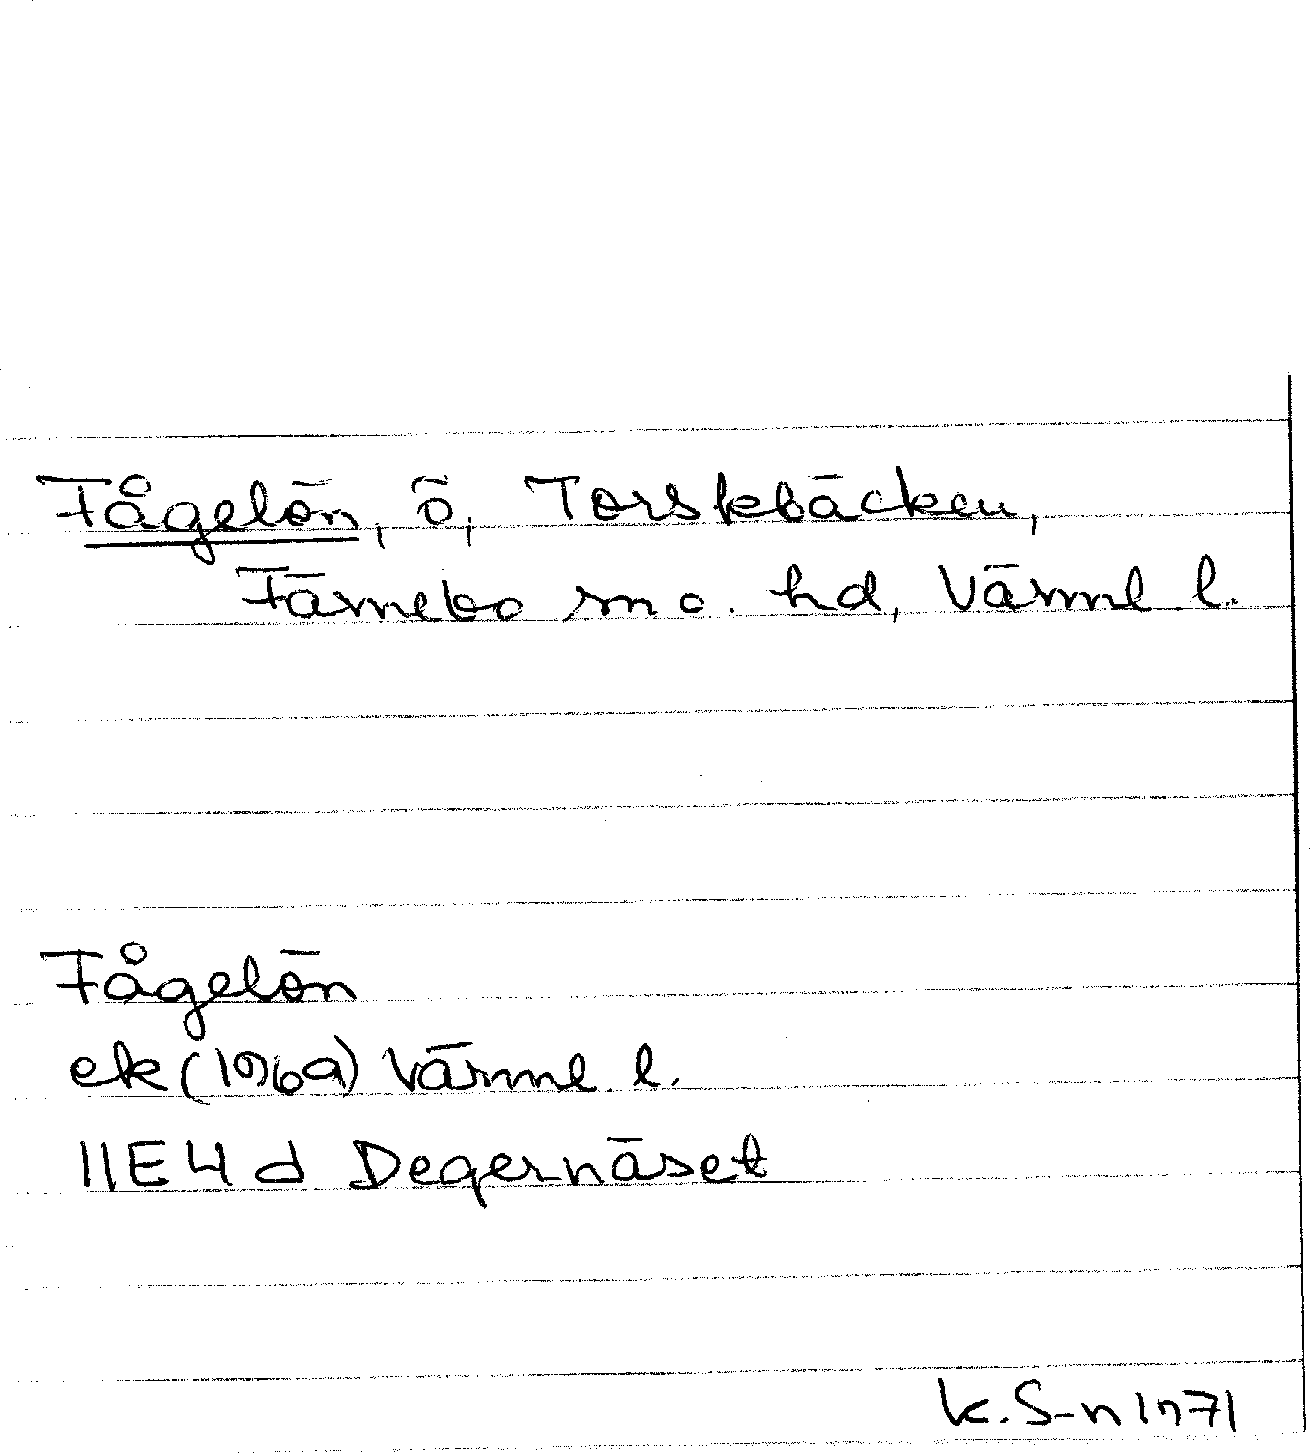 Fågelön, ö, Torskebäcken,
Färnebo sn o. hd, Värml l.
Fågelön
ek (1969) Värml. l.
11E4d Degernäset
K. S-n 1971